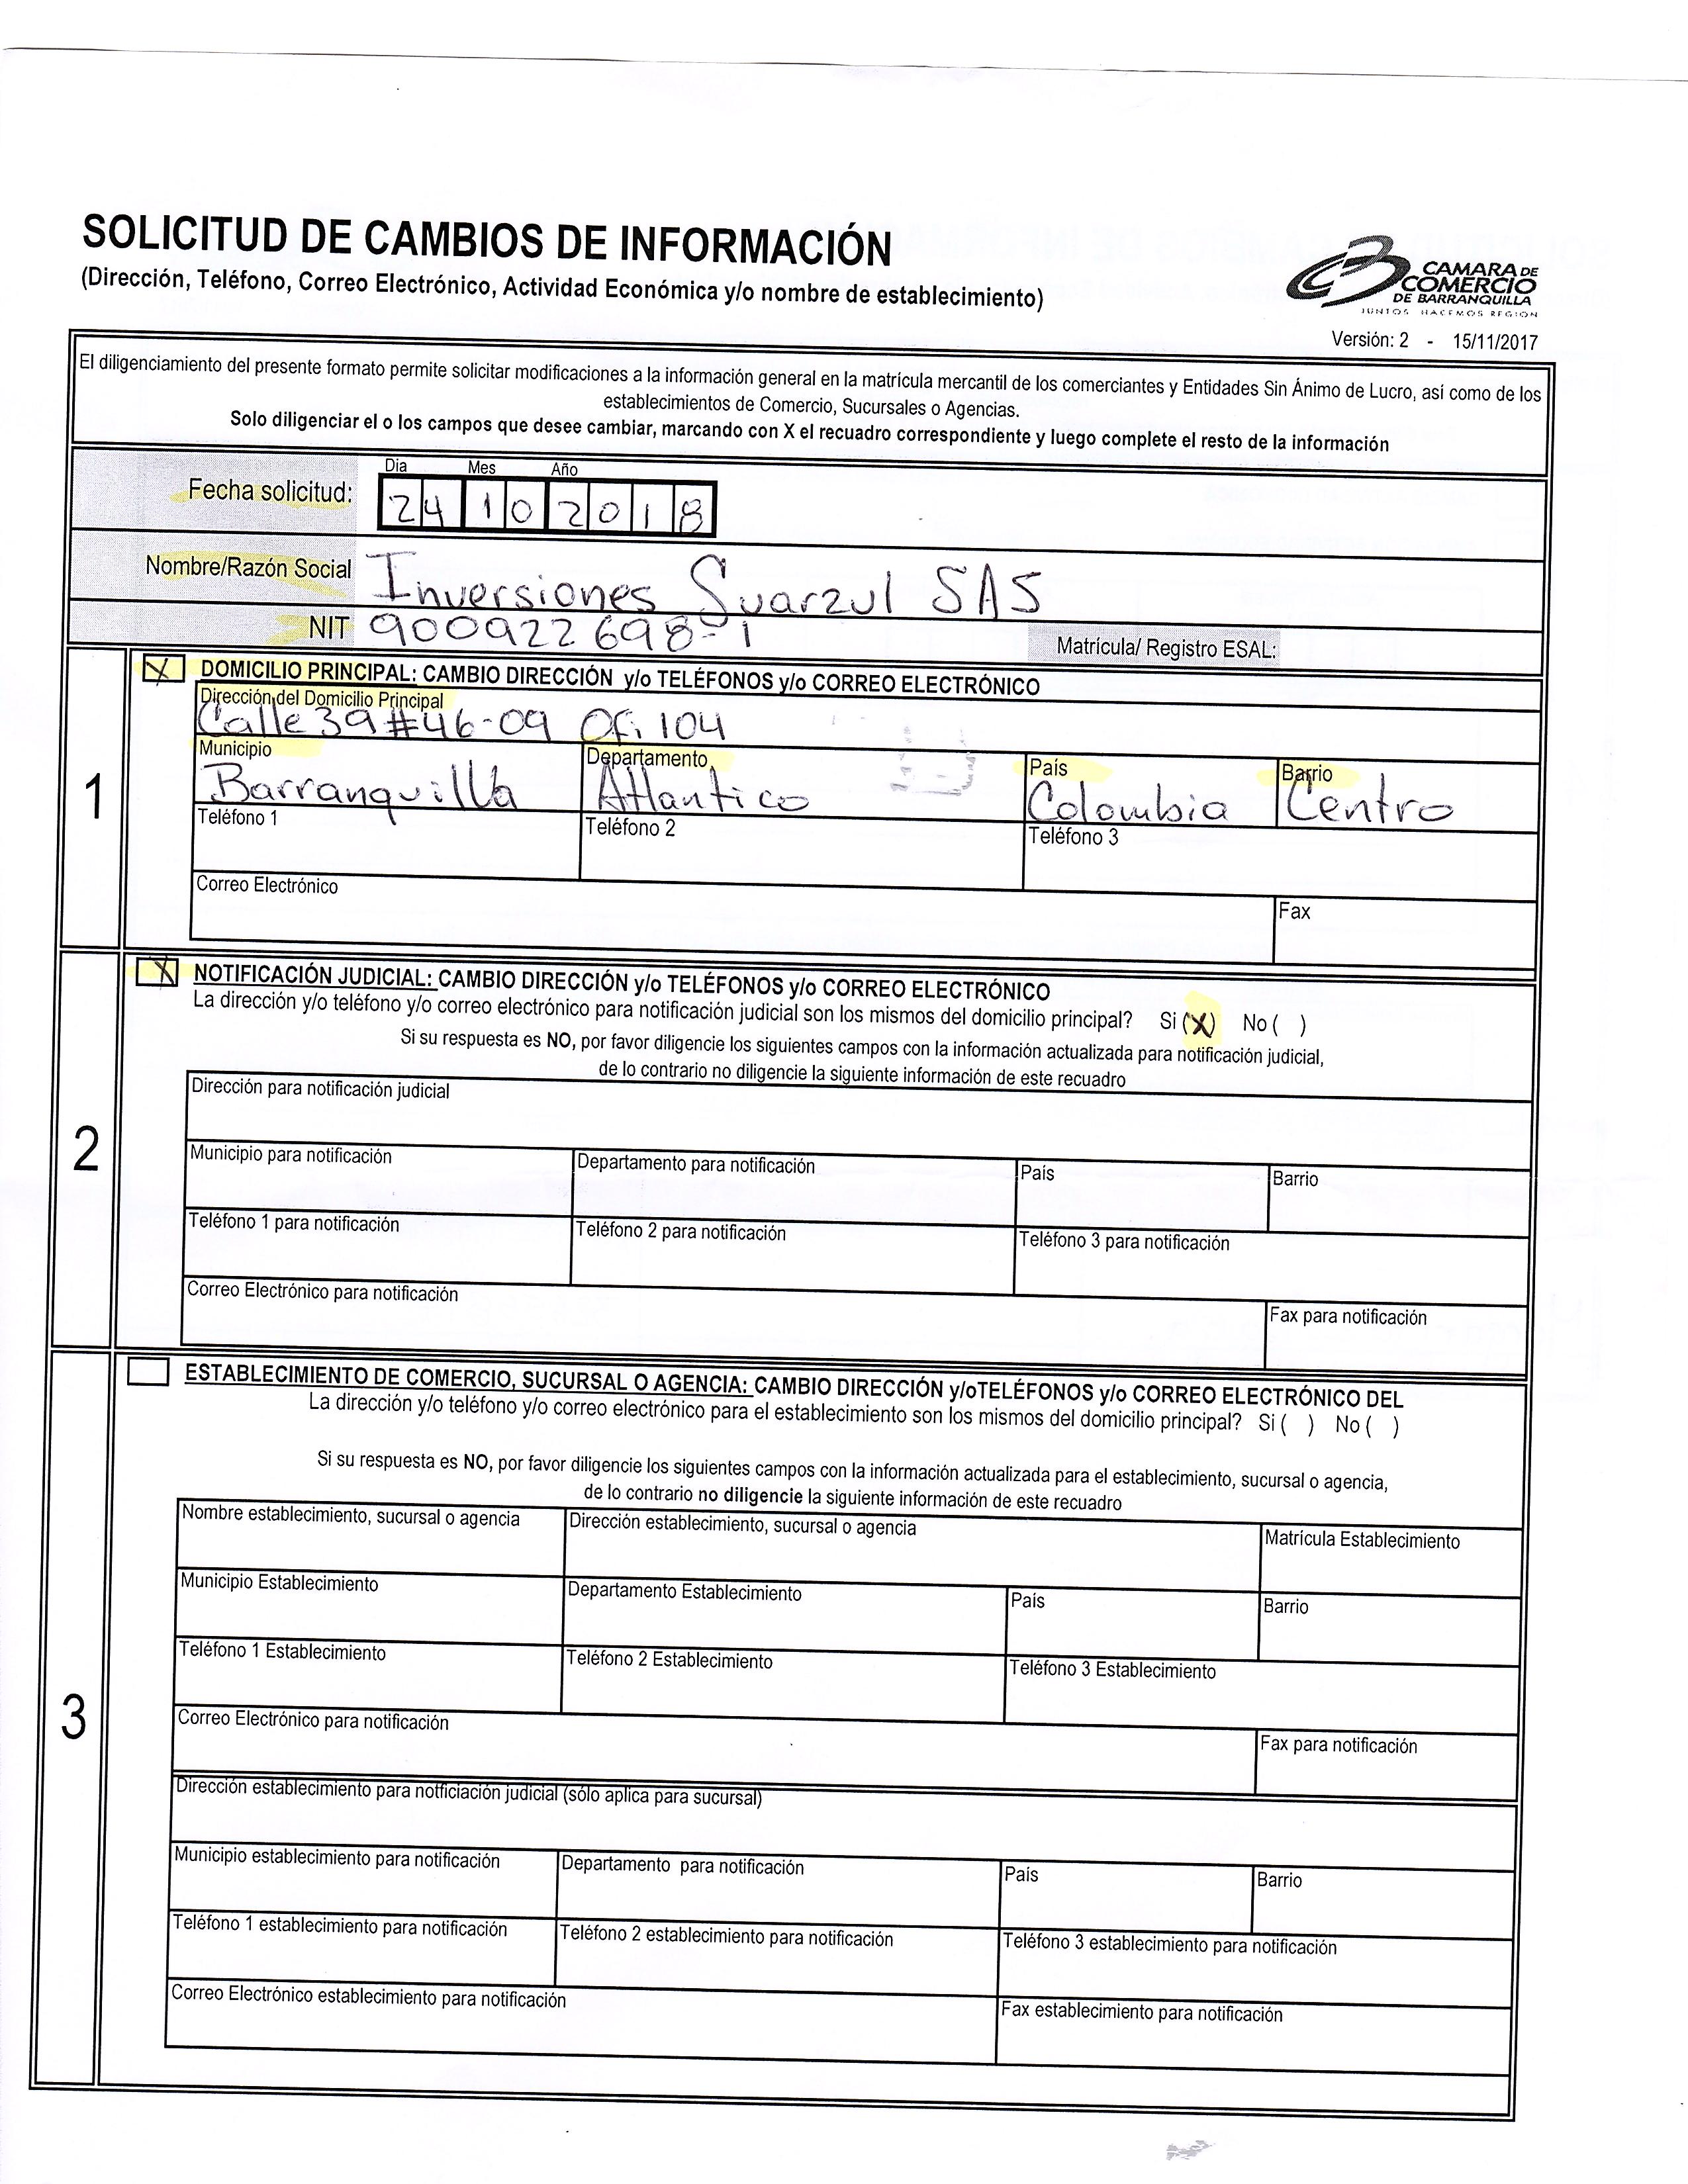 SOLICITUD DE CAMBIOS DE INFORMACIÓN
(Dirección, Teléfono, Correo Electrónico, Actividad Económica y/o nombre de establecimiento)
CAMARA DE
COMERCIO
DE BARRANQUILLA
JUNTOS HACEMOS REGION
Versión: 2 - 15/11/2017
El diligenciamiento del presente formato permite solicitar modificaciones a la información general en la matrícula mercantil de los comerciantes y Entidades Sin Ánimo de Lucro, así como de los
establecimientos de Comercio, Sucursales o Agencias.
Solo diligenciar el o los campos que desee cambiar, marcando con X el recuadro correspondiente y luego complete el resto de la información
Dia Mes Año
Fecha solicitud: 24 10 2018
Nombre/Razón Social Inversiones Suarzul SAS
NIT 900922698-1 Matrícula/ Registro ESAL:
1
X DOMICILIO PRINCIPAL: CAMBIO DIRECCIÓN y/o TELÉFONOS y/o CORREO ELECTRÓNICO
Dirección del Domicilio Principal
Calle 39 #46-09 Ofi 104
Municipio Departamento País Barrio
Barranquilla Atlantico Colombia Centro
Teléfono 1 Teléfono 2 Teléfono 3
Correo Electrónico Fax
2
X NOTIFICACIÓN JUDICIAL: CAMBIO DIRECCIÓN y/o TELÉFONOS y/o CORREO ELECTRÓNICO
La dirección y/o teléfono y/o correo electrónico para notificación judicial son los mismos del domicilio principal? Si (X) No ( )
Si su respuesta es NO, por favor diligencie los siguientes campos con la información actualizada para notificación judicial,
de lo contrario no diligencie la siguiente información de este recuadro
Dirección para notificación judicial
Municipio para notificación Departamento para notificación País Barrio
Teléfono 1 para notificación Teléfono 2 para notificación Teléfono 3 para notificación
Correo Electrónico para notificación Fax para notificación
3
ESTABLECIMIENTO DE COMERCIO, SUCURSAL O AGENCIA: CAMBIO DIRECCIÓN y/oTELÉFONOS y/o CORREO ELECTRÓNICO DEL
La dirección y/o teléfono y/o correo electrónico para el establecimiento son los mismos del domicilio principal? Si ( ) No ( )
Si su respuesta es NO, por favor diligencie los siguientes campos con la información actualizada para el establecimiento, sucursal o agencia,
de lo contrario no diligencie la siguiente información de este recuadro
Nombre establecimiento, sucursal o agencia Dirección establecimiento, sucursal o agencia Matrícula Establecimiento
Municipio Establecimiento Departamento Establecimiento País Barrio
Teléfono 1 Establecimiento Teléfono 2 Establecimiento Teléfono 3 Establecimiento
Correo Electrónico para notificación Fax para notificación
Dirección establecimiento para notficiación judicial (sólo aplica para sucursal)
Municipio establecimiento para notificación Departamento para notificación País Barrio
Teléfono 1 establecimiento para notificación Teléfono 2 establecimiento para notificación Teléfono 3 establecimiento para notificación
Correo Electrónico establecimiento para notificación Fax establecimiento para notificación